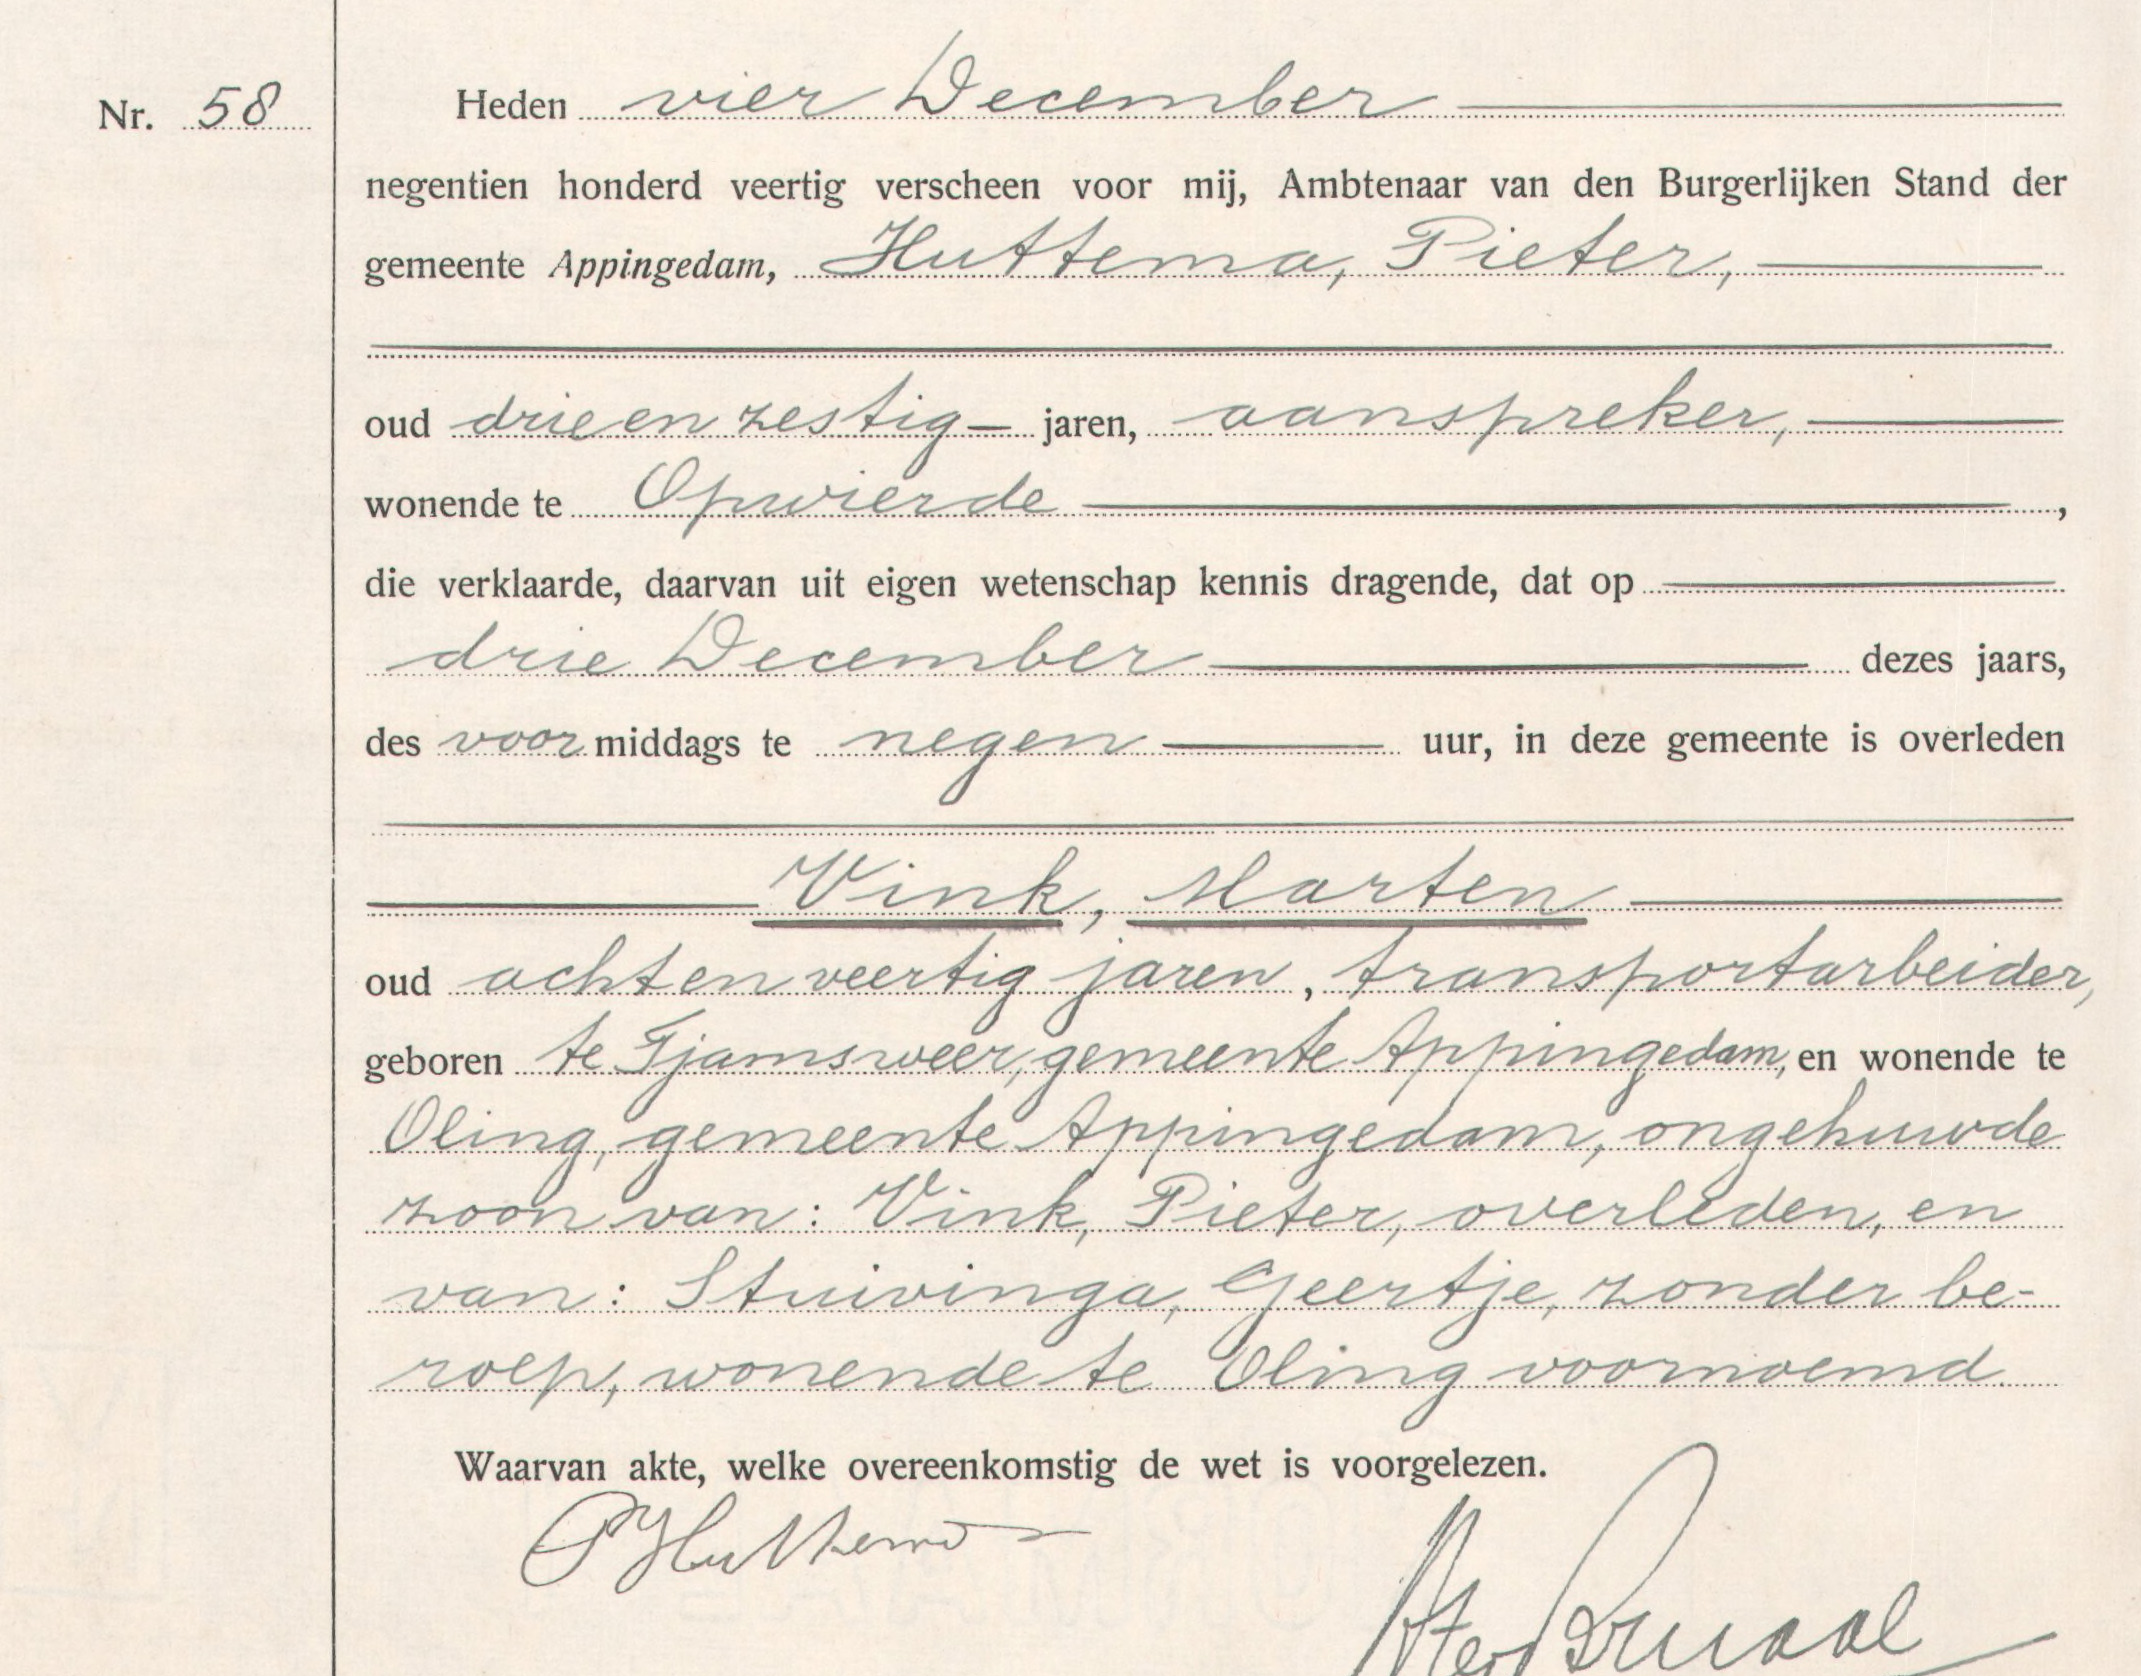 Nr. 58
Heden vier December
negentien honderd veertig verscheen voor mij, Ambtenaar van den Burgerlijken Stand der
gemeente Appingedam, Huttema, Pieter,
oud drieenzestig jaren, aanspreker,
wonende te Opwierde,
die verklaarde, daarvan uit eigen wetenschap kennis dragende, dat op
drie December dezes jaars,
des voormiddags te negen uur, in deze gemeente is overleden
Vink, Marten
oud achtenveertig jaren, transportarbeider,
geboren te Tjamsweer, gemeente Appingedam, en wonende te
Oling, gemeente Appingedam, ongehuwde
zoon van: Vink, Pieter, overleden, en
van: Stuivinga, Geertje, zonder be-
roep, wonende te Oling voornoemd.
Waarvan akte, welke overeenkomstig de wet is voorgelezen.
P Huttema